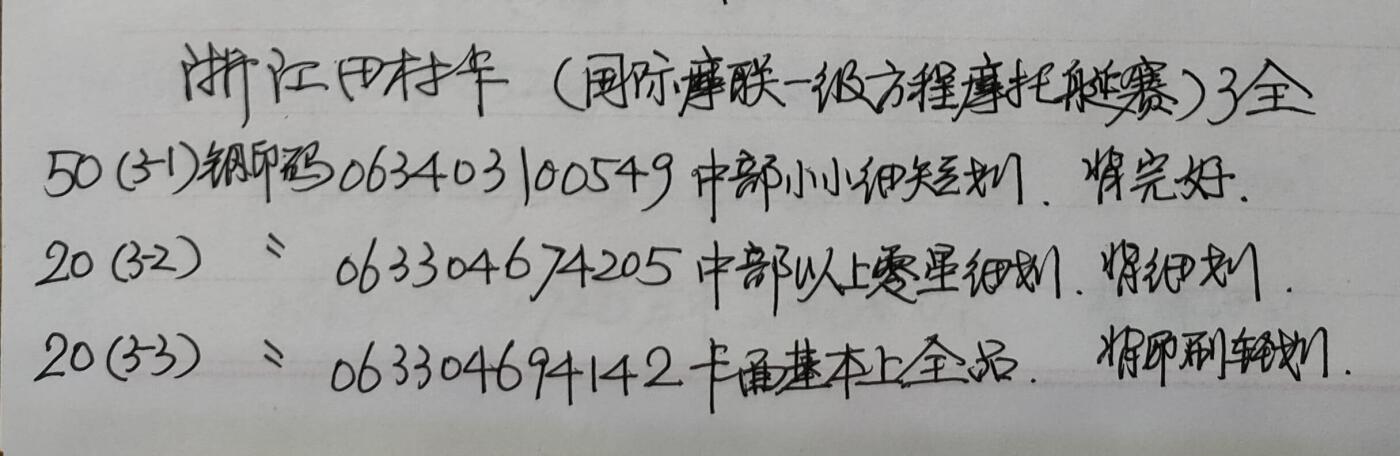 浙江田村卡（国际摩联一级方程摩托艇赛）3全
50(3-1)钢印码063403100549中部小小细短划. 背完好.
20(3-2) 〃 063304674205中部以上零星细划. 背细划.
20(3-3) 〃 063304694142卡面基本上全品. 背印刷轻划.